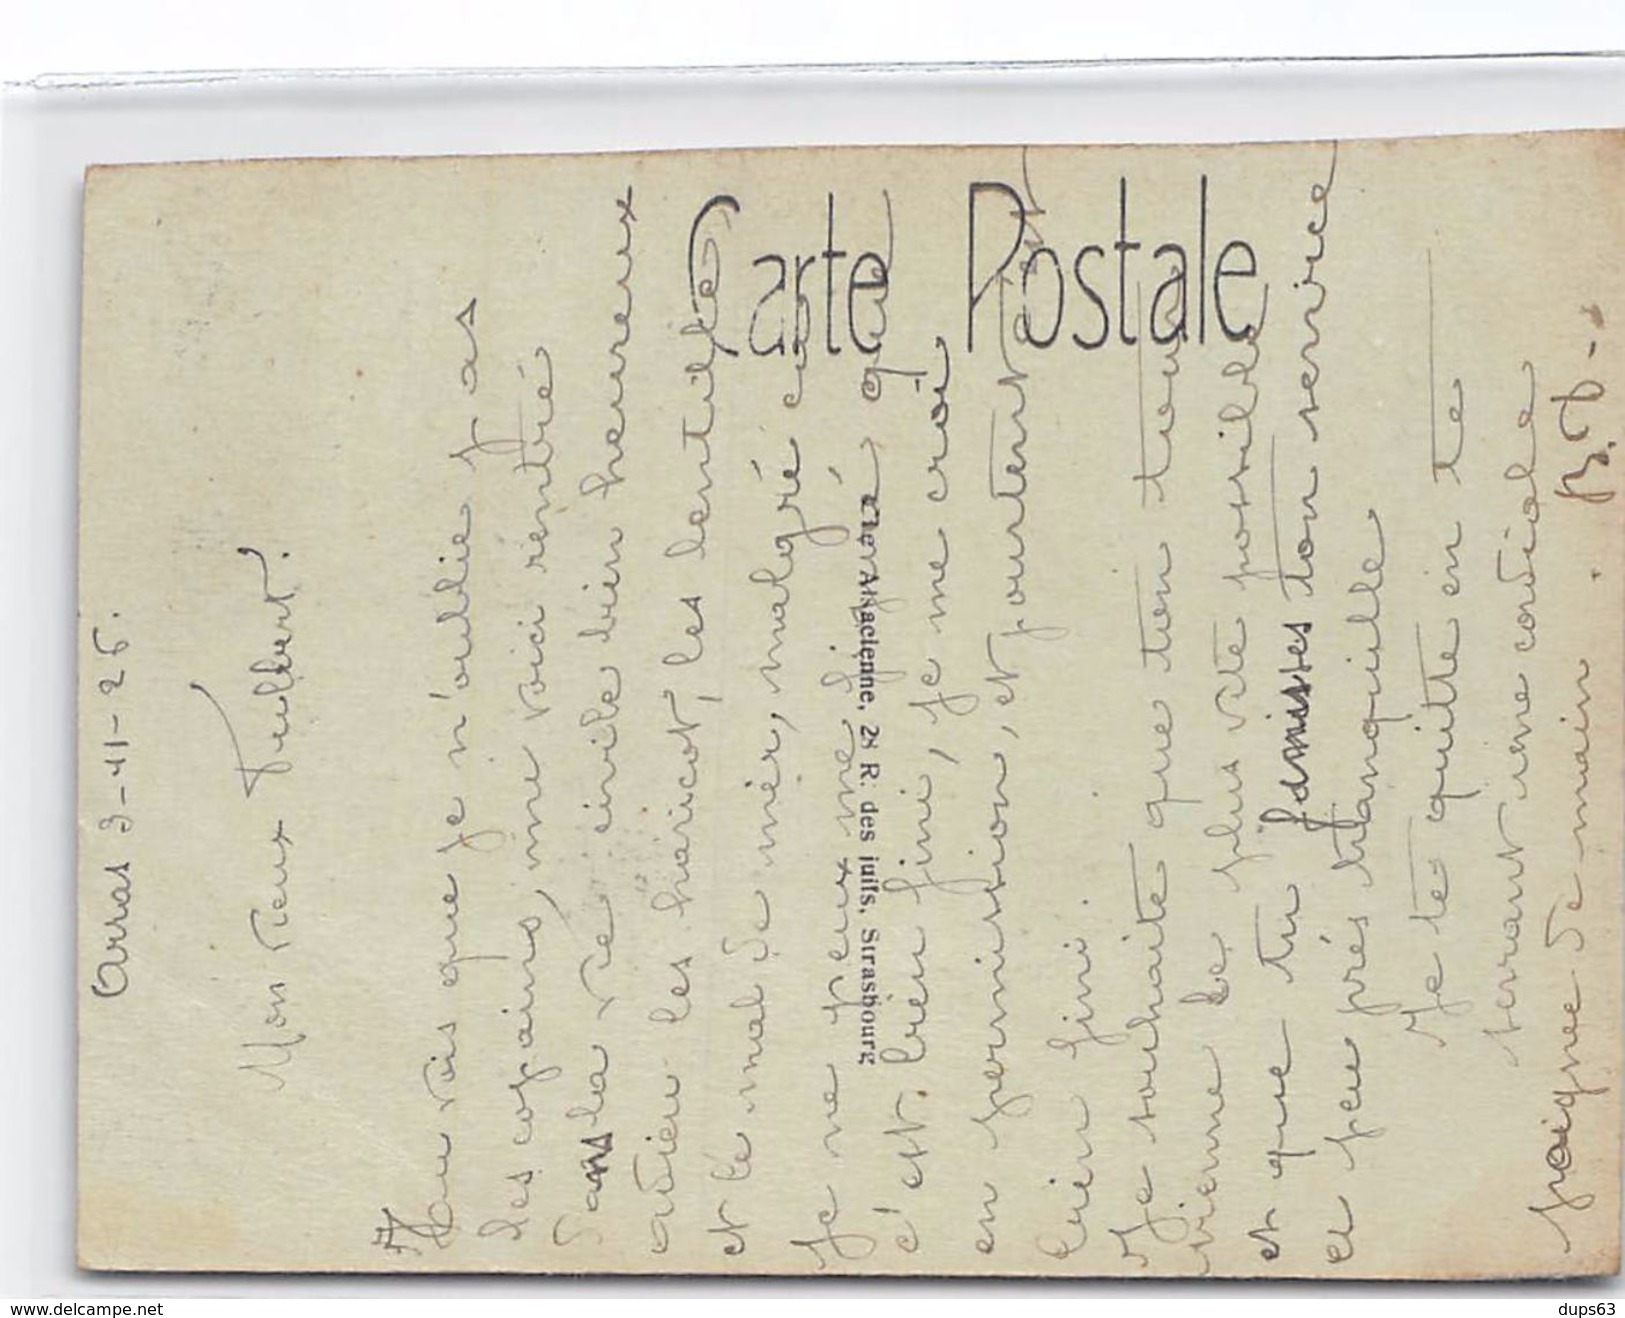 Arras 3-11-25.
Mon vieux Fulbert.
Tu vois que je n'oublie pas
les copains, me voici rentré
dans la vie civile bien heureux
adieu les haricot, les lentilles
et le mal de mer, malgré
Je ne peux me figuré que
c'est bien fini, je me croi
en permission, et pourtent c'est
bien fini.
Je souhaite que ton tour
vienne le plus vite possible
et que tu finisses ton service
a peu près tranquille
Je te quitte en te
serrant une cordiale
poignee de main
Carte Postale
Cie Alsacienne, 28 R. des juifs. Strasbourg
www.delcampe.net
dups63